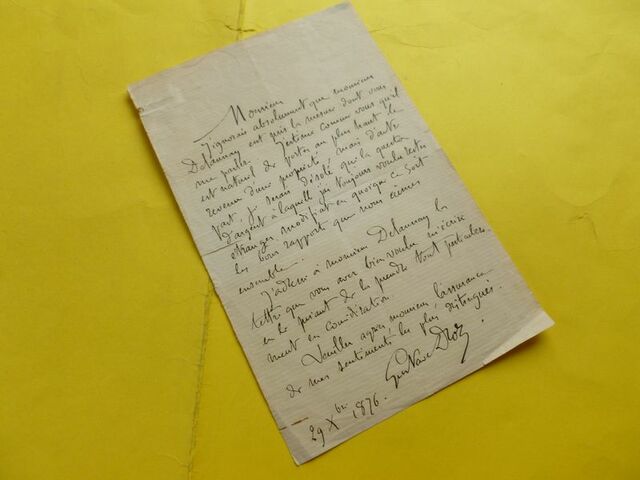 Monsieur
J'ignorais absolument que monsieur
Delaunay eut pris la mesure dont vous
me parlez. J'estime comme vous qu'il
est naturel de porter au plus haut le
revenu d'une propriété, mais d'autre
part, je serais désolé que la question
d'argent à laquelle j'ai toujours voulu rester
étranger, modifiat en quoique ce soit
les bons rapports que nous eumes
ensemble.
J'adresse à monsieur Delaunay la
lettre que vous avez bien voulu m'écrire
en le priant de la prendre tout particulière-
ment en considération.
Veuillez agréer monsieur l'assurance
de mes sentiments les plus distingués.
Gustave Droz
29 Xbre 1876.